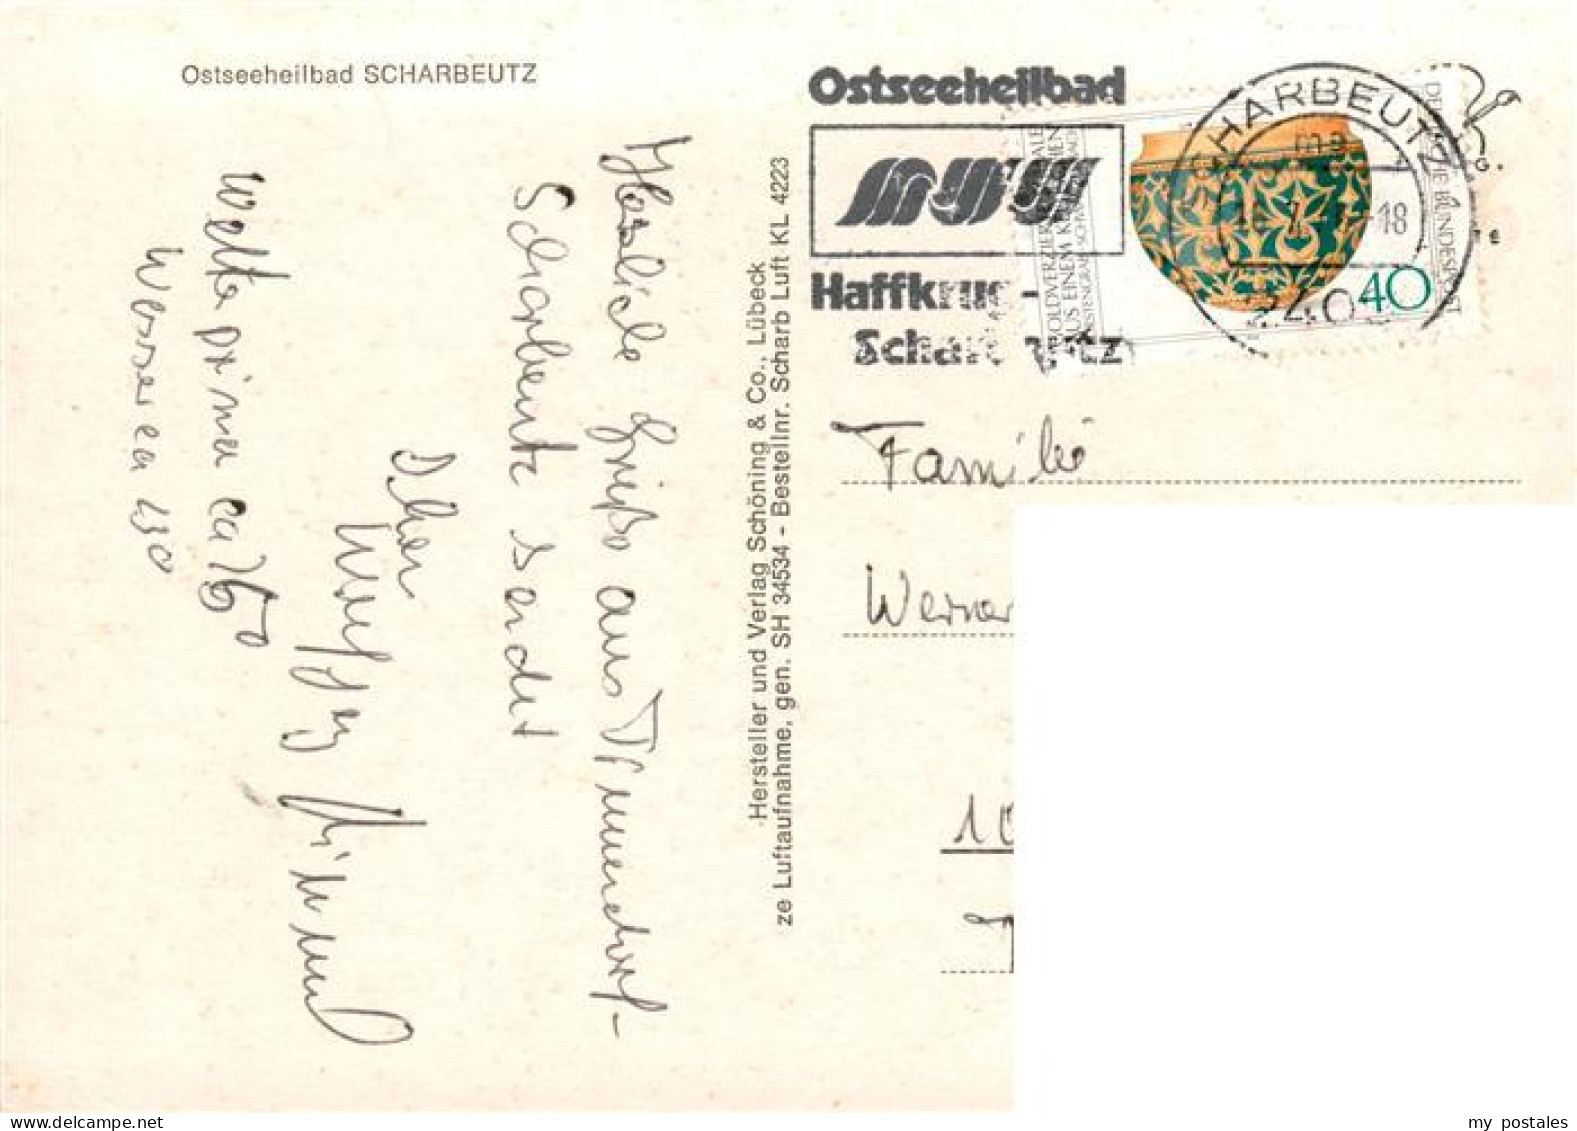 Ostseeheilbad SCHARBEUTZ
Herzliche Grüße aus Timmendorf-
Scharbeutz sendet
Ihnen
Wetter prima ca 26°
Wasser ca 23°
Hersteller und Verlag Schöning & Co., Lübeck
ze Luftaufnahme, gen. SH 34534 - Bestellnr. Scharb Luft KL 4223
Ostseeheilbad
Haffkrug-
Scharbeutz
SCHARBEUTZ
18
2409
40
DEUTSCHE BUNDESPOST
GOLDVERZIERTE SCHALE
AUS EINEM KELTISCHEN
FÜRSTENGRAB
Familie
Werner
10
my postales